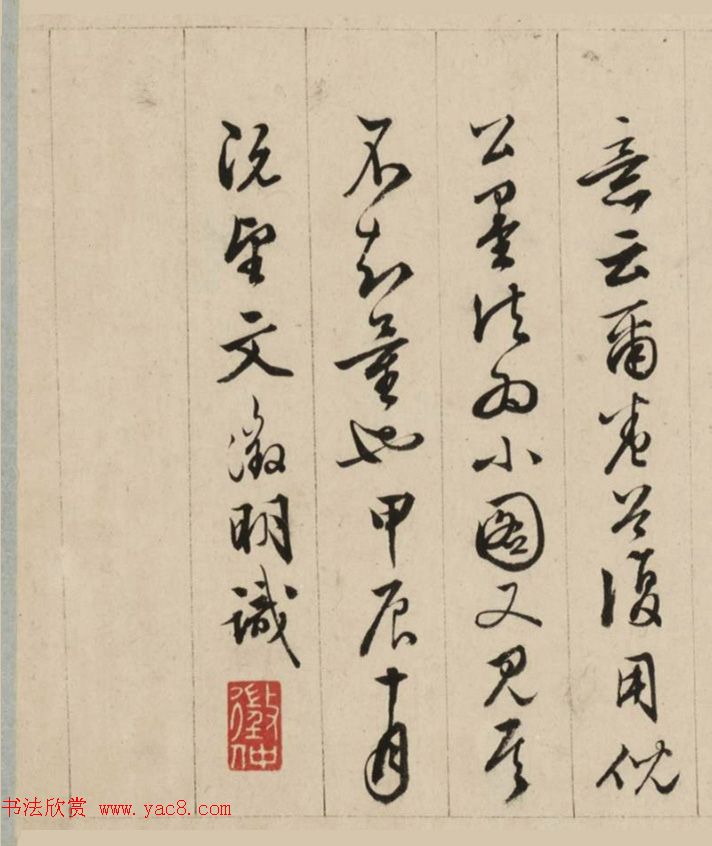 意云爾卷首復用倪
公墨法為小圖又見其
不知量也甲辰十月
既望文徵明識
徵仲
书法欣赏 www.yac8.com